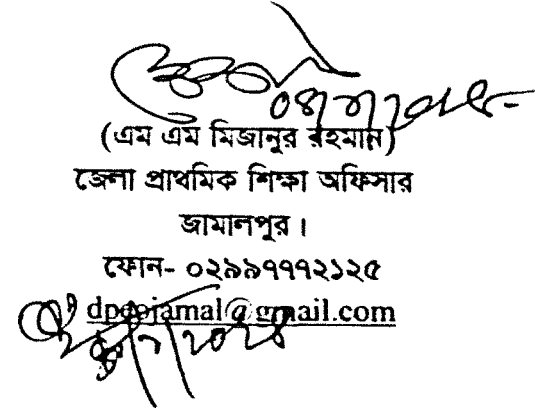 (এম এম মিজানুর রহমান)
জেলা প্রাথমিক শিক্ষা অফিসার
জামালপুর।
ফোন- ০২৯৯৭৭৭২১২৫
dpeojamal@gmail.com